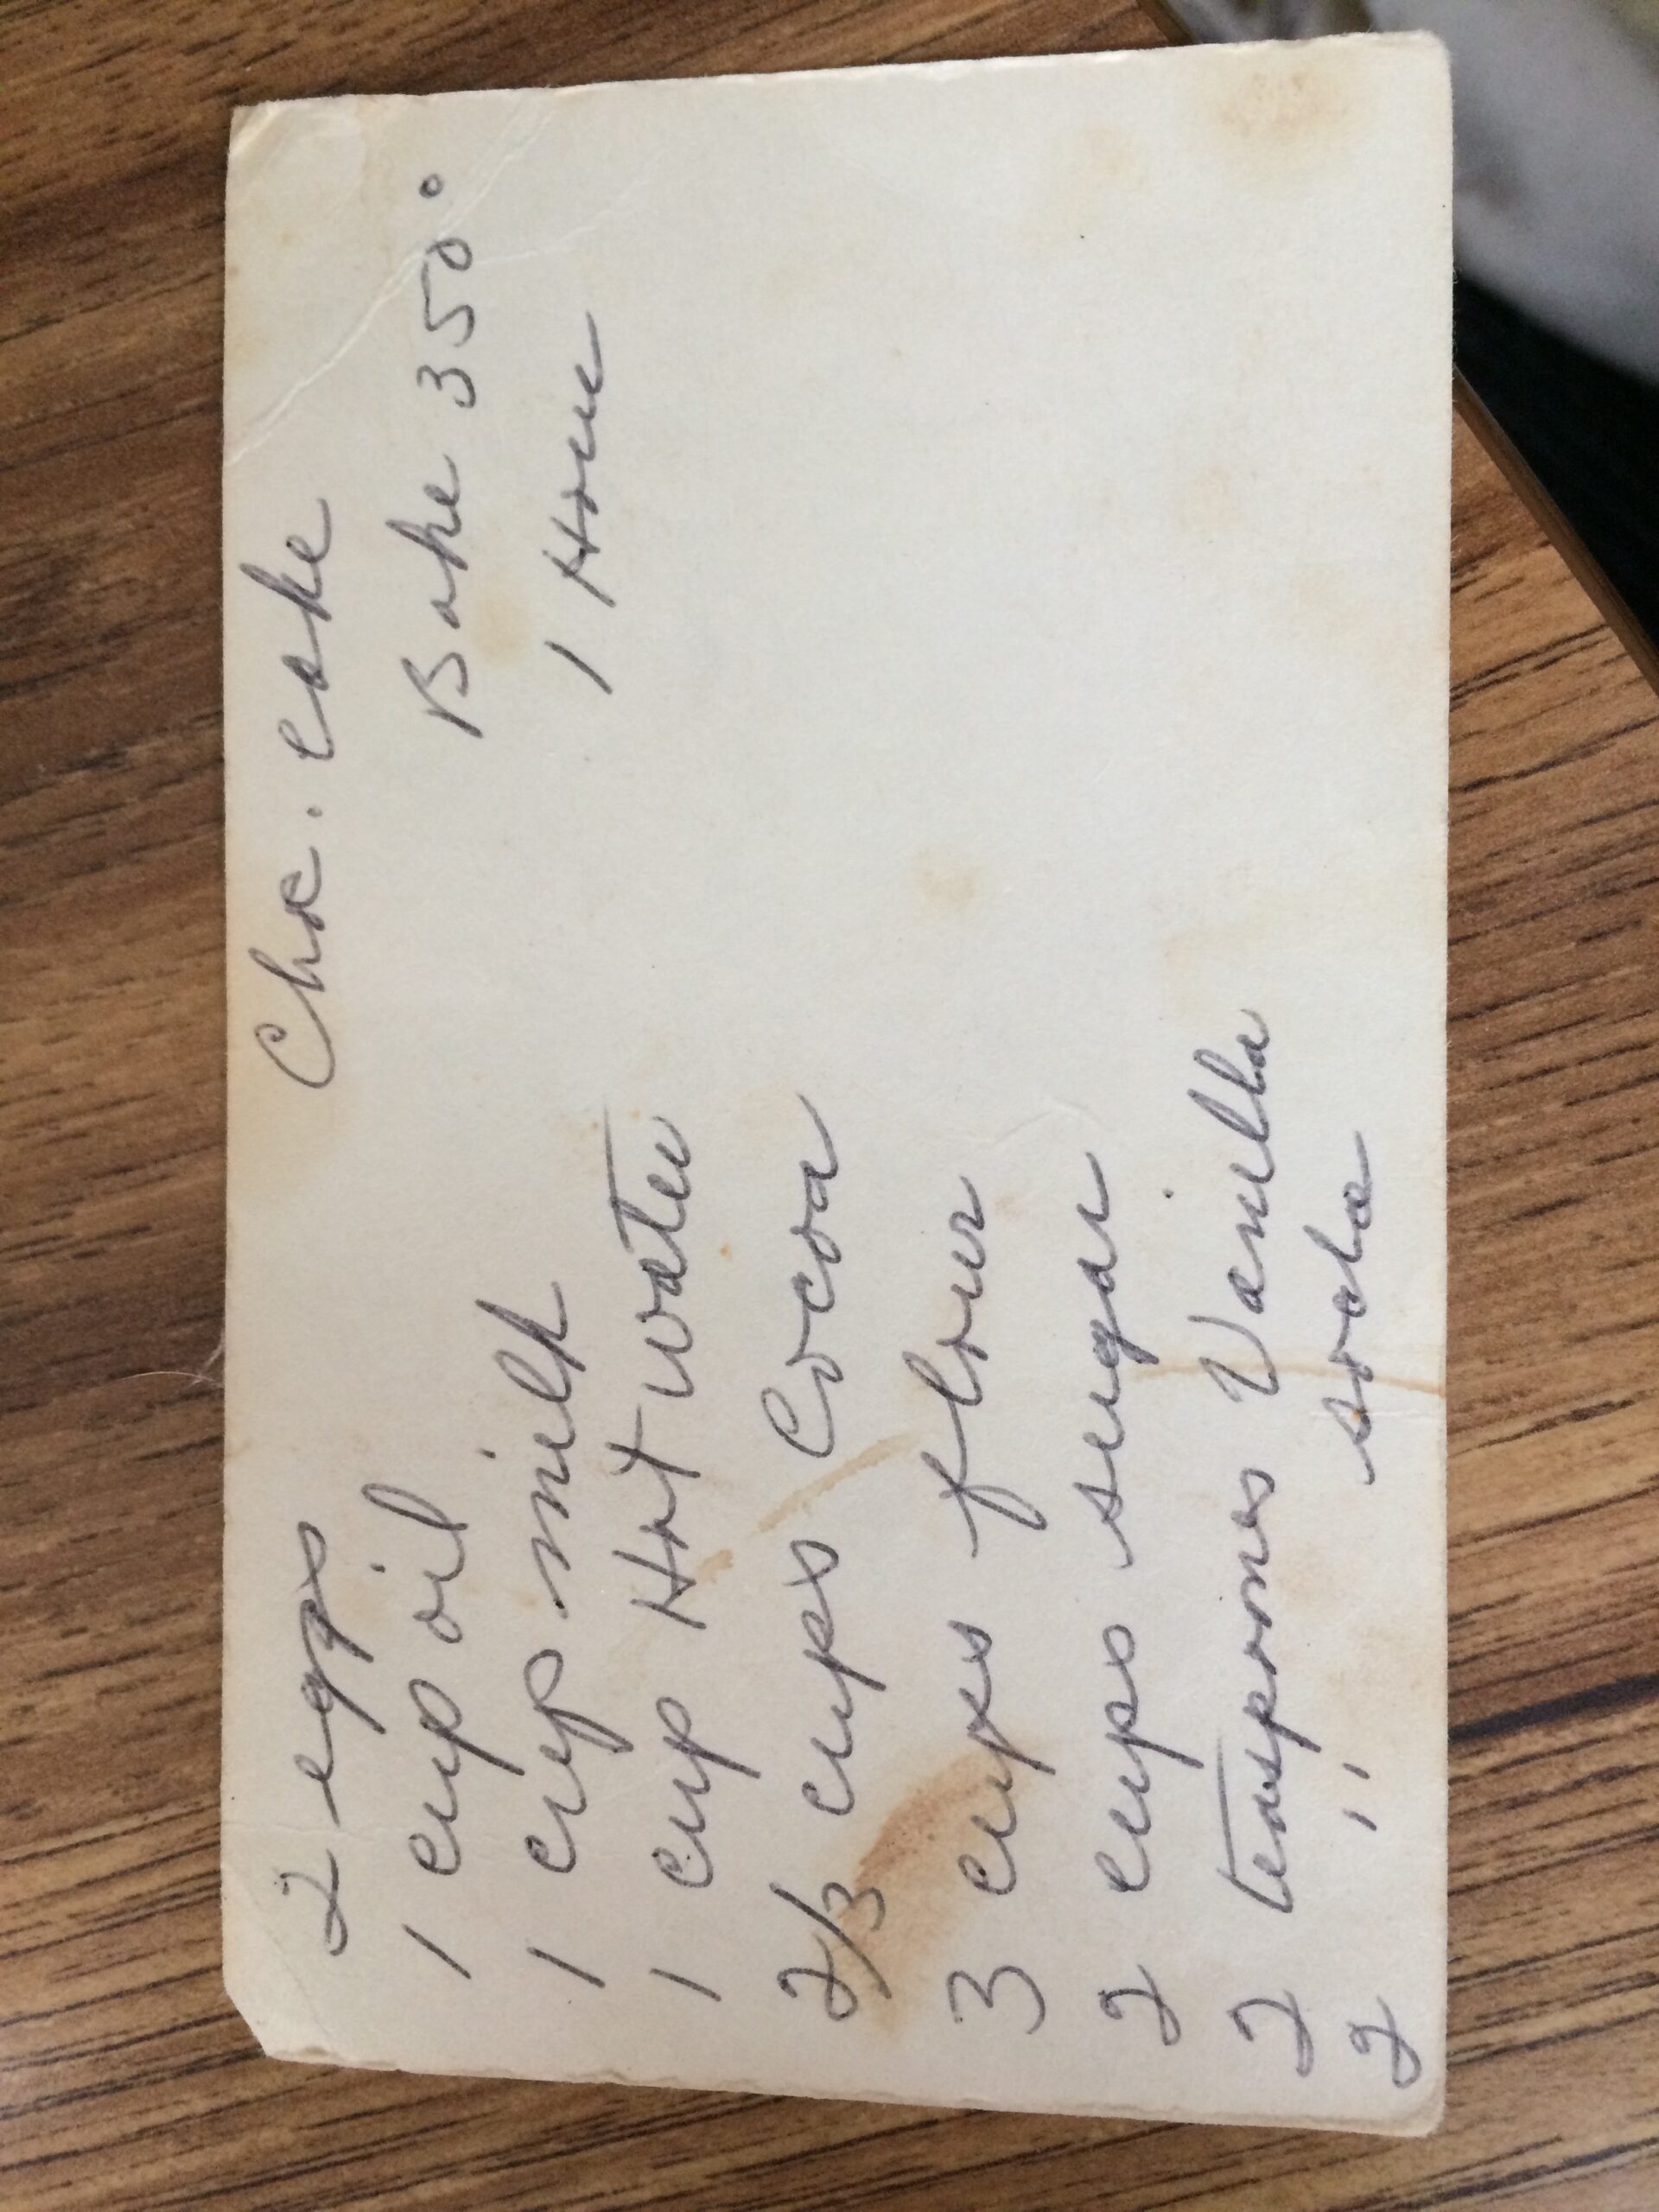 Choc. cake
2 eggs
1 cup oil Bake 350°
1 cup milk 1 Hour
1 cup Hot water
2/3 cups Cocoa
3 cups flour
2 cups sugar
2 teaspoones Vanilla
2 " soda